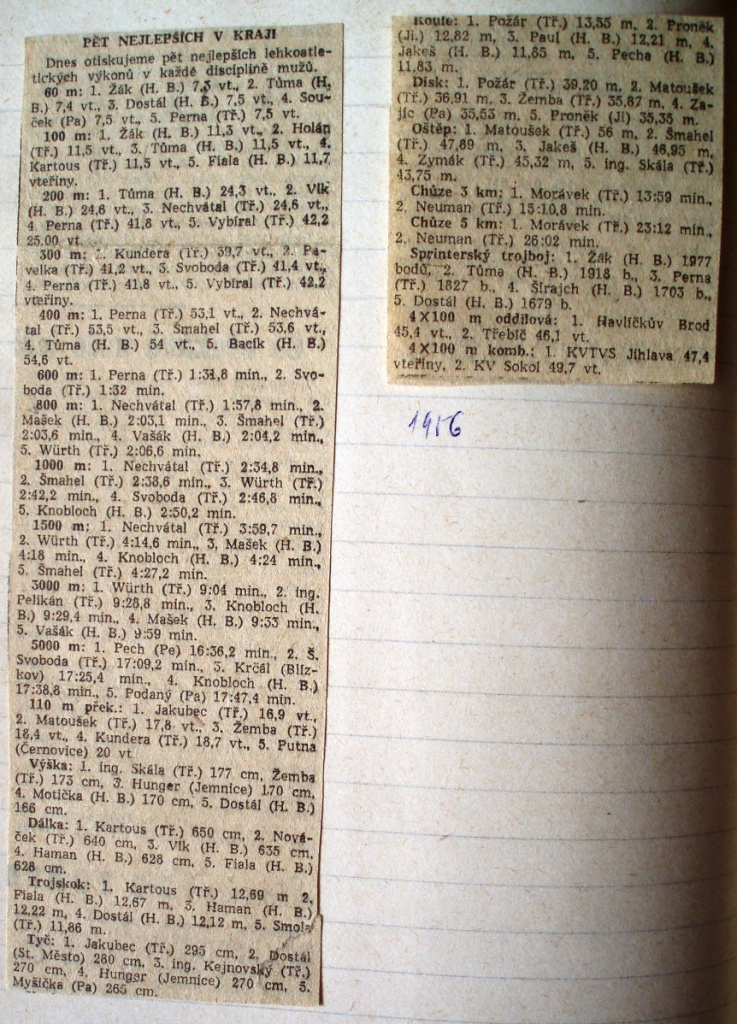 PĚT NEJLEPŠÍCH V KRAJI
Dnes otiskujeme pět nejlepších lehkoatle-
tických výkonů v každé disciplině mužů.
60 m: 1. Žák (H. B.) 7,3 vt., 2. Tůma (H.
B.) 7,4 vt., 3. Dostál (H. B.) 7,5 vt., 4. Sou-
ček (Pa) 7,5 vt., 5. Perna (Tř.) 7,5 vt.
100 m: 1. Žák (H. B.) 11,3 vt., 2. Holán
(Tř.) 11,5 vt., 3. Tůma (H. B.) 11,5 vt., 4.
Kartous (Tř.) 11,5 vt., 5. Fiala (H. B.) 11,7
vteřiny.
200 m: 1. Tůma (H. B.) 24,3 vt., 2. Vlk
(H. B.) 24,6 vt., 3. Nechvátal (Tř.) 24,6 vt.,
4. Perna (Tř.) 41,8 vt., 5. Vybíral (Tř.) 42,2
25,00 vt.
300 m: 1. Kundera (Tř.) 39,7 vt., 2. Pa-
velka (Tř.) 41,2 vt., 3. Svoboda (Tř.) 41,4 vt.,
4. Perna (Tř.) 41,8 vt., 5. Vybíral (Tř.) 42,2
vteřiny.
400 m: 1. Perna (Tř.) 53,1 vt., 2. Nechvá-
tal (Tř.) 53,5 vt., 3. Šmahel (Tř.) 53,6 vt.,
4. Tůma (H. B.) 54 vt., 5. Bacík (H. B.)
54,6 vt.
600 m: 1. Perna (Tř.) 1:31,8 min., 2. Svo-
boda (Tř.) 1:32 min.
800 m: 1. Nechvátal (Tř.) 1:57,8 min., 2.
Mašek (H. B.) 2:03,1 min., 3. Šmahel (Tř.)
2:03,6 min., 4. Vašák (H. B.) 2:04,2 min.,
5. Würth (Tř.) 2:06,6 min.
1000 m: 1. Nechvátal (Tř.) 2:34,8 min.,
2. Šmahel (Tř.) 2:38,6 min., 3. Würth (Tř.)
2:42,2 min., 4. Svoboda (Tř.) 2:46,8 min.,
5. Knobloch (H. B.) 2:50,2 min.
1500 m: 1. Nechvátal (Tř.) 3:59,7 min.,
2. Würth (Tř.) 4:14,6 min., 3. Mašek (H. B.)
4:18 min., 4. Knobloch (H. B.) 4:24 min.,
5. Šmahel (Tř.) 4:27,2 min.
3000 m: 1. Würth (Tř.) 9:04 min., 2. ing.
Pelikán (Tř.) 9:28,8 min., 3. Knobloch (H.
B.) 9:29,4 min., 4. Mašek (H. B.) 9:33 min.,
5. Vašák (H. B.) 9:59 min.
5000 m: 1. Pech (Pe) 16:36,2 min., 2. Š.
Svoboda (Tř.) 17:09,2 min., 3. Krčál (Blíz-
kov) 17:25,4 min., 4. Knobloch (H. B.)
17:38,8 min., 5. Podaný (Pa) 17:47,4 min.
110 m přek.: 1. Jakubec (Tř.) 16,9 vt.,
2. Matoušek (Tř.) 17,8 vt., 3. Žemba (Tř.)
18,4 vt., 4. Kundera (Tř.) 18,7 vt., 5. Putna
(Černovice) 20 vt.
Výška: 1. ing. Skála (Tř.) 177 cm, Žemba
(Tř.) 173 cm, 3. Hunger (Jemnice) 170 cm,
4. Motička (H. B.) 170 cm, 5. Dostál (H. B.)
166 cm.
Dálka: 1. Kartous (Tř.) 650 cm, 2. Nová-
ček (Tř.) 640 cm, 3. Vlk (H. B.) 635 cm,
4. Haman (H. B.) 628 cm, 5. Fiala (H. B.)
628 cm.
Trojskok: 1. Kartous (Tř.) 12,69 m 2.
Fiala (H. B.) 12,67 m, 3. Haman (H. B.)
12,22 m, 4. Dostál (H. B.) 12,12 m, 5. Smola
(Tř.) 11,86 m.
Tyč: 1. Jakubec (Tř.) 295 cm, 2. Dostál
(St. Město) 280 cm, 3. ing. Kejnovský (Tř.)
270 cm, 4. Hunger (Jemnice) 270 cm, 5.
Myšička (Pa) 265 cm.
Koule: 1. Požár (Tř.) 13,35 m, 2. Proněk
(Ji.) 12,82 m, 3. Paul (H. B.) 12,21 m, 4.
Jakeš (H. B.) 11,85 m, 5. Pecha (H. B.)
11,83 m.
Disk: 1. Požár (Tř.) 39,20 m, 2. Matoušek
(Tř.) 36,91 m, 3. Žemba (Tř.) 35,87 m, 4. Za-
jíc (Pa) 35,53 m, 5. Proněk (Ji) 35,35 m.
Oštěp: 1. Matoušek (Tř.) 56 m, 2. Šmahel
(Tř.) 47,69 m, 3. Jakeš (H. B.) 46,95 m,
4. Zymák (Tř.) 45,32 m, 5. ing. Skála (Tř.)
43,75 m.
Chůze 3 km: 1. Morávek (Tř.) 13:59 min.,
2. Neuman (Tř.) 15:10,8 min.
Chůze 5 km: 1. Morávek (Tř.) 23:12 min.,
2. Neuman (Tř.) 26:02 min.
Sprinterský trojboj: 1. Žák (H. B.) 1977
bodů, 2. Tůma (H. B.) 1918 b., 3. Perna
(Tř.) 1827 b., 4. Širajch (H. B.) 1703 b.,
5. Dostál (H. B.) 1679 b.
4X100 m oddílová: 1. Havlíčkův Brod
45,4 vt., 2. Třebíč 46,1 vt.
4X100 m komb.: 1. KVTVS Jihlava 47,4
vteřiny, 2. KV Sokol 49,7 vt.
1956